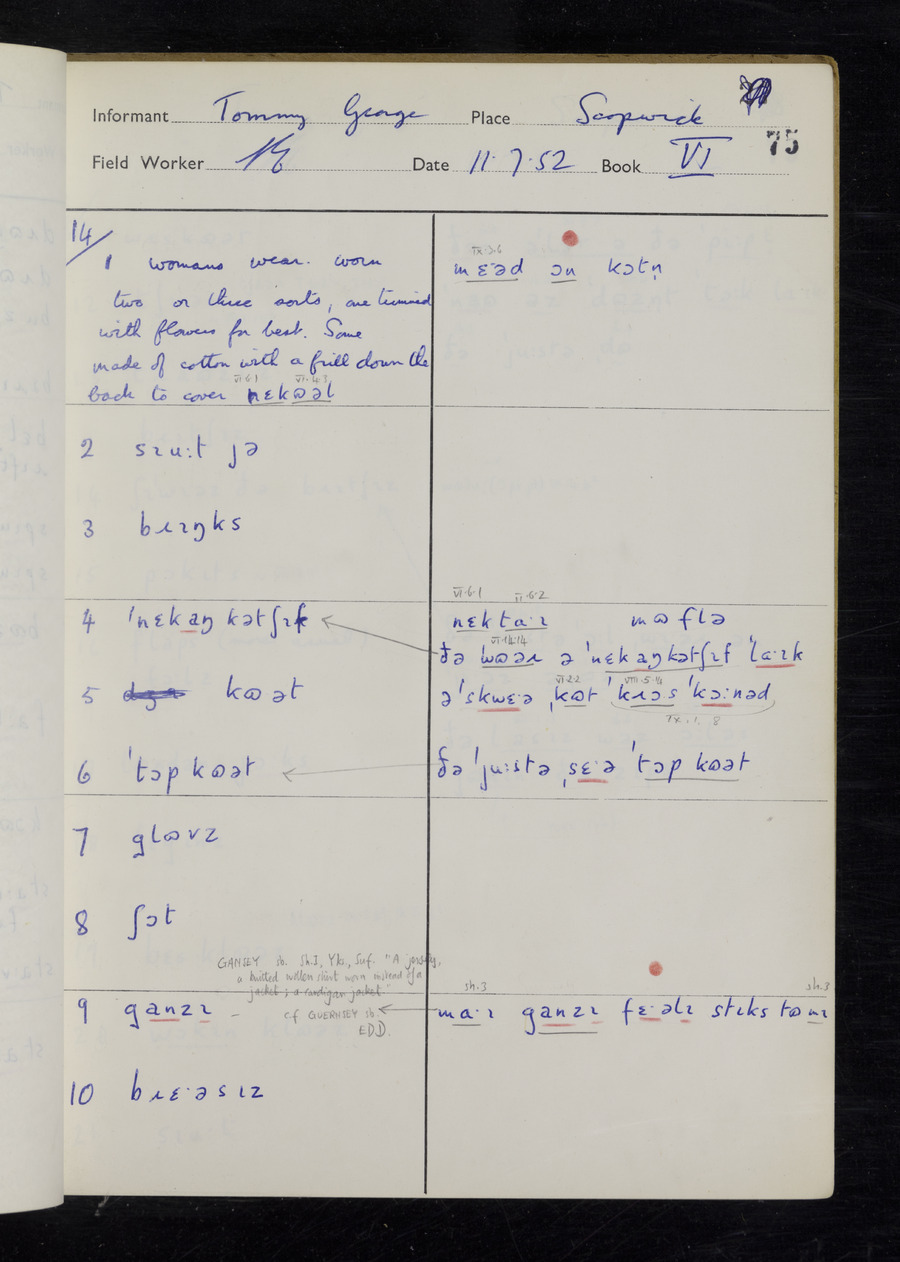 Informant Tommy George Place Scopwick
75
Field Worker Date 11·7·52 Book VI
14/
1 womans wear. worn
two or three sorts, one trimmed
with flowers for best. Some
made of cotton with a frill down the
VI·6·1 VI·4·3
back to cover nɛkɷəl
IX·3·6
mɛ·əd ɔn kɔtn̩
2 sɪu:t ɟə
3 bɹɪŋks
4 ˈnɛkaŋkətʃɪf
VI·6·1 VI·6·2
nɛktaˑɪ mɷflə
VI·14·14
ðə wɷəɹ ə ˈnɛkaŋkətʃɪf ˈlaˑɪk
5 kɷət
VI·2·2 VIII·5·14
əˈskwɛˑə ˌkɷt ˈkɹɔs ˈkɔ:nəd
IX·1·8
6 ˈtɔp kɷət
ðə ˈju:stə ˌsɛˑə ˈtɔp kɷət
7 glɷvz
8 ʃɔt
GANSEY sb. Sh.I, Yks., Suf. "A jersey,
a knitted woollen shirt worn instead of a
jacket; a cardigan jacket"
9 ganzɪ – cf GUERNSEY sb.
EDD.
sh.3 sh.3
maˑɪ ganzɪ fɛˑəlɪ stɪks tɷ mɪ
10 bɹɛˑəsɪz